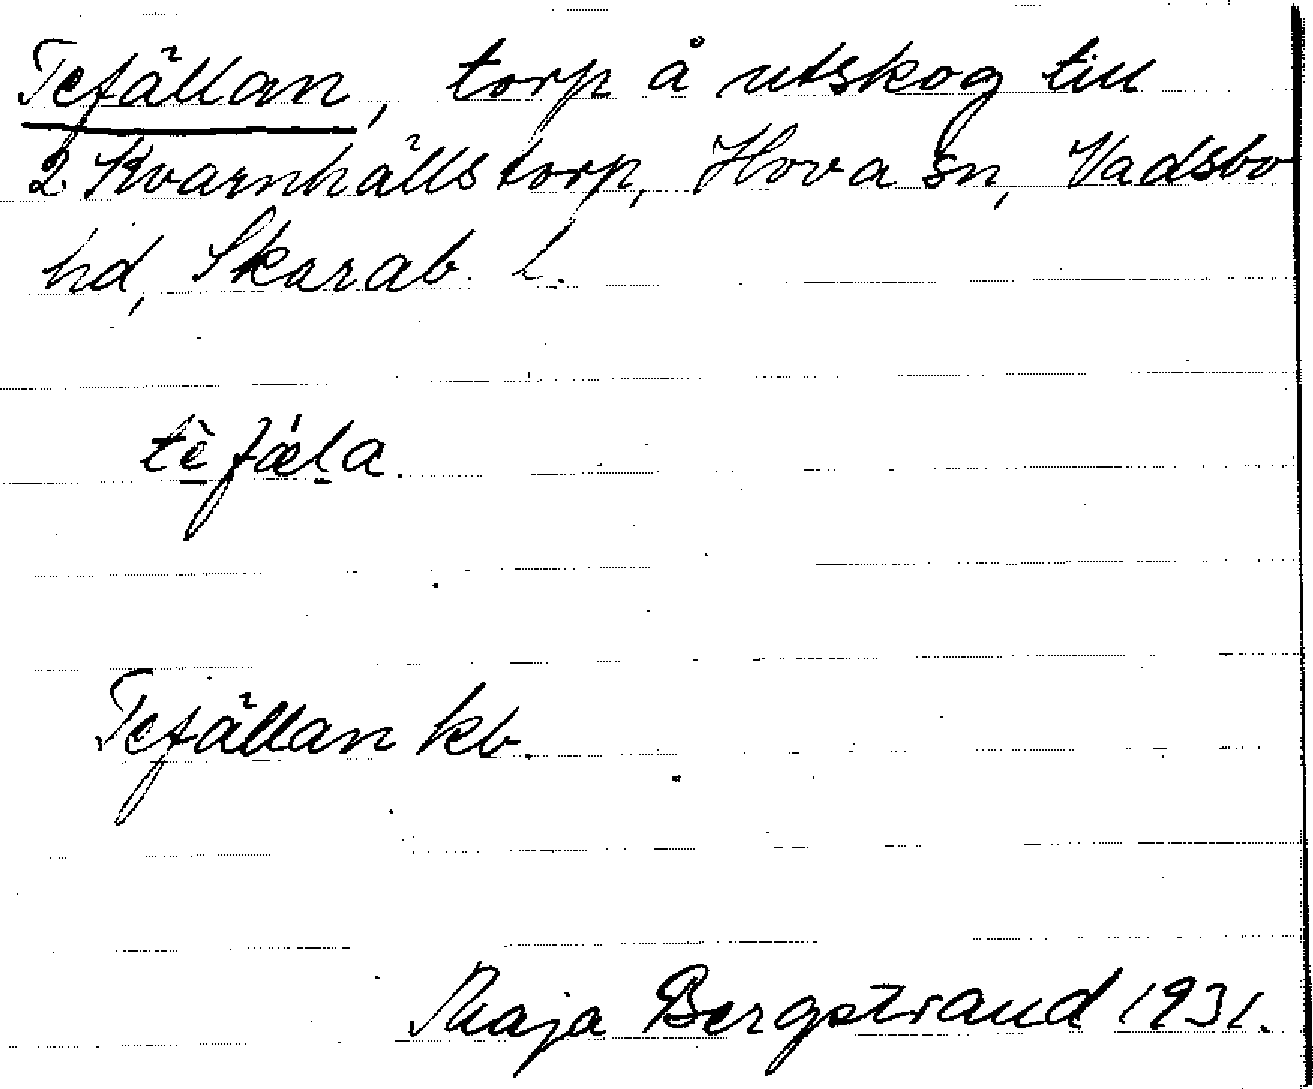 Tefällan, torp å utskog till
2 Kvarnhällstorp, Hova sn, Vadsbo
hd, Skarab. l.
tèfǽla
Tefällan kb.
Maja Bergstrand 1931.